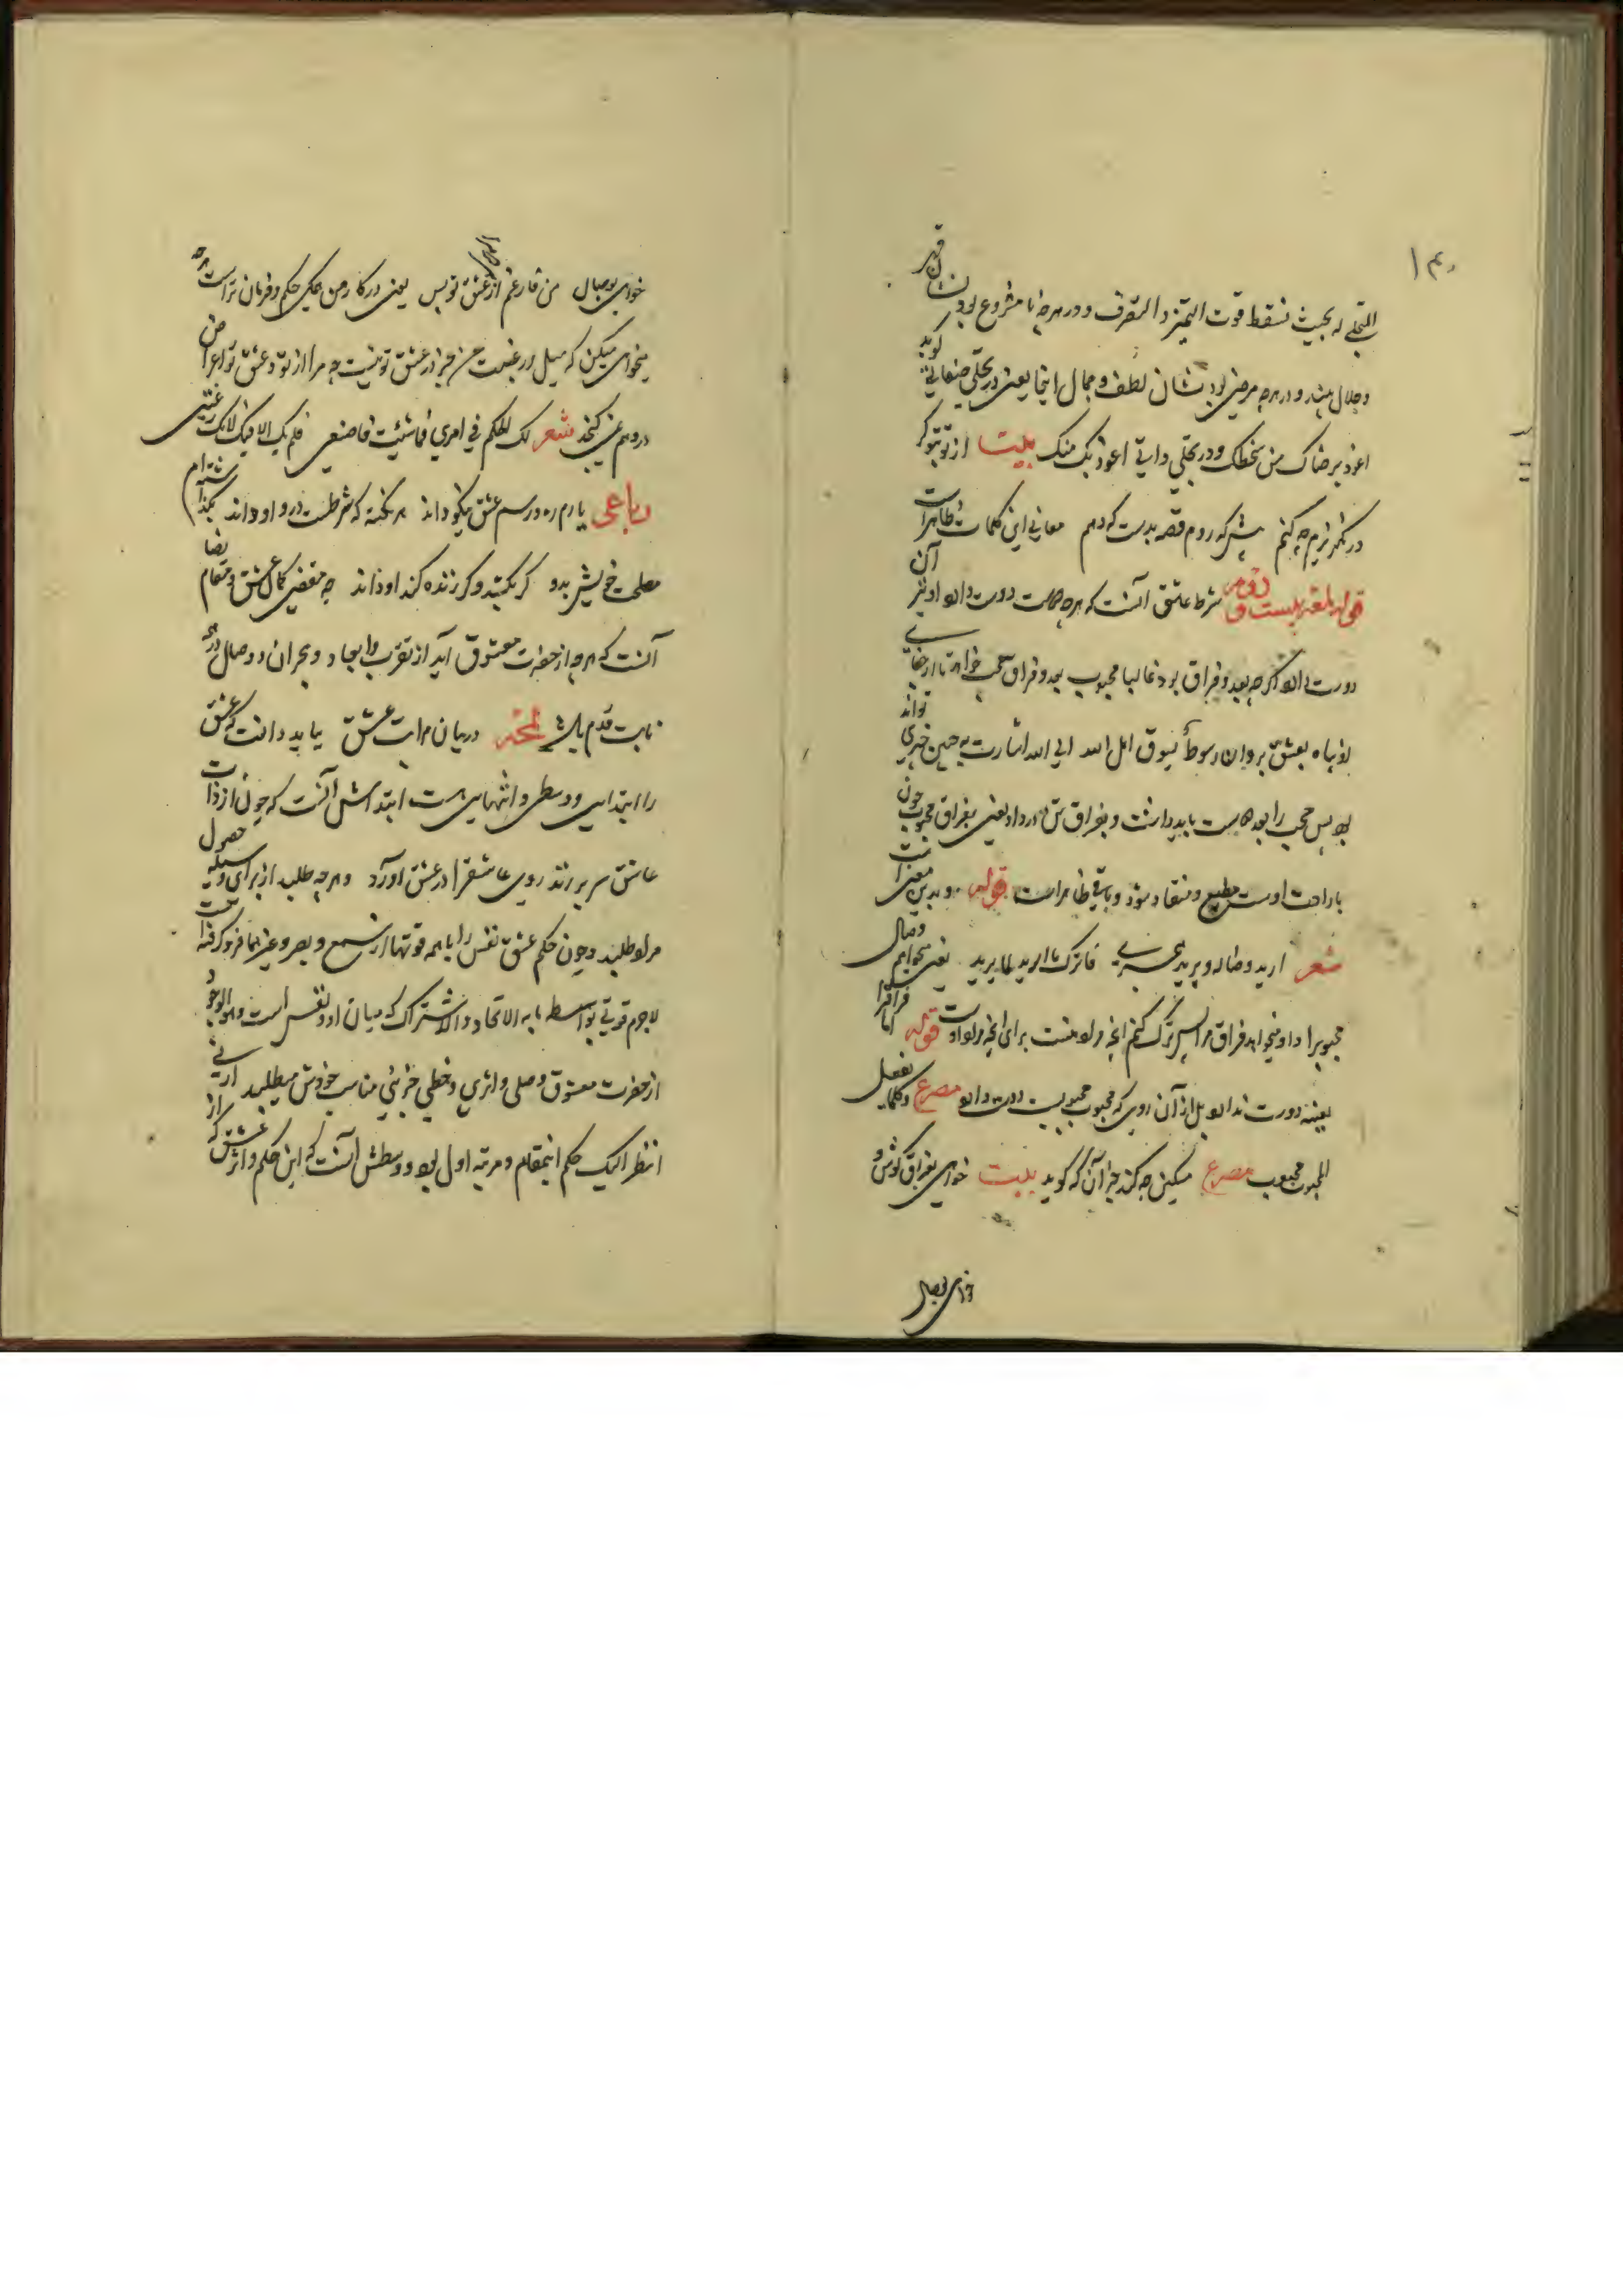 ۱۳۰
المتجلی له بحیث تسقط قوت التمیز و التصرف و در هرچه نا مشروع بود نشان قهر
و جلال بیند و در هرچه مرضی بود نشان لطف و جمال اینجا یعنی در تجلی صفاتی گوید
اعوذ برضاک من سخطک و در تجلی ذاتی اعوذ بک منک بیت از تو بتو گر
در نگریزم چه کنم پیش که روم قصه بدست که دهم معانی این کلمات ظاهر است
قوله لمعه بیست و دوم شرط عاشق آنست که هرچه دوست دوست دارد او نیز آن
دوست دارد اگرچه بعد و فراق بود و غالبا محبوب بعد و فراق محب خواهد تا از جفای
او پناه بعشق برد و ان سوطاً یسوق اهل الله الی الله اشارت به چنین چیزی تواند
بود پس محب را بعد دوست باید داشت و بفراق تن در داد یعنی بفراق محبوب چون
با راحت اوست مطیع و منقاد شود و باقی ظاهر است قوله و بدین معنی
شعر ارید وصاله و یرید هجری فاترک ما ارید لما یرید یعنی میخواهم وصال
محبوبرا و او میخواهد فراق مرا پس ترک کنم انچه مراد منست برای انچه مراد اوست قوله اما فراقرا
بعینه دوست ندارد بل از آن روی که محبوب محبوبست دوست دارد مصرع و کلما یفعل
المحبوب محبوب مصرع مسکین چه کند جز آن که گوید بیت خواهی بفراق کوش و
خواهی بوصال
خواهی بوصال من فارغم از هر دو مرا عشق تو بس یعنی در کار من محکی حکم و فرمان تراست هرچه
میخواهی میکن که میل و رغبت من جز در عشق تو نیست چه مرا از تو و عشق تو اعراض
در وهم نمی گنجد شعر لک الحکم فی امری فما شئت فاصنعی فلم یک الا فیک لا عنک رغبتی
رباعی یارم ره و رسم عشق نیکو داند هر نکته که شرطست درو او داند بگذاشته‌ام
مصلحت خویش بدو گر بکشد و گر زنده کند او داند چه مقتضی کمال عشق و مقام رضا
آنست که هرچه از حضرت معشوق آید از تقرب و ابعاد و هجران و وصال در همه
ثابت قدم باشد لمعه در بیان مراتب عشق بباید دانست که عشق
را ابتدایی و وسطی و انتهایی هست ابتداءش آنست که چون از ذات
عاشق سر برزند روی عاشقرا در عشق آورد و هرچه طلبد از برای وسیله حصول
مراد طلبد و چون حکم عشق نفس را با همه قوتها از سمع و بصر و غیرهما فرو گرفته است
لاجرم قوتی بواسطه ما به الاتحاد و الاشتراک که میان او و نفس است و هو الوجود
از حضرت معشوق وصلی و اثری و حظی جزئی مناسب خودش میطلبد ارنی
انظر الیک حکم اینمقام و مرتبه اول بود و وسطش آنست که این حکم و اثر عشق که از